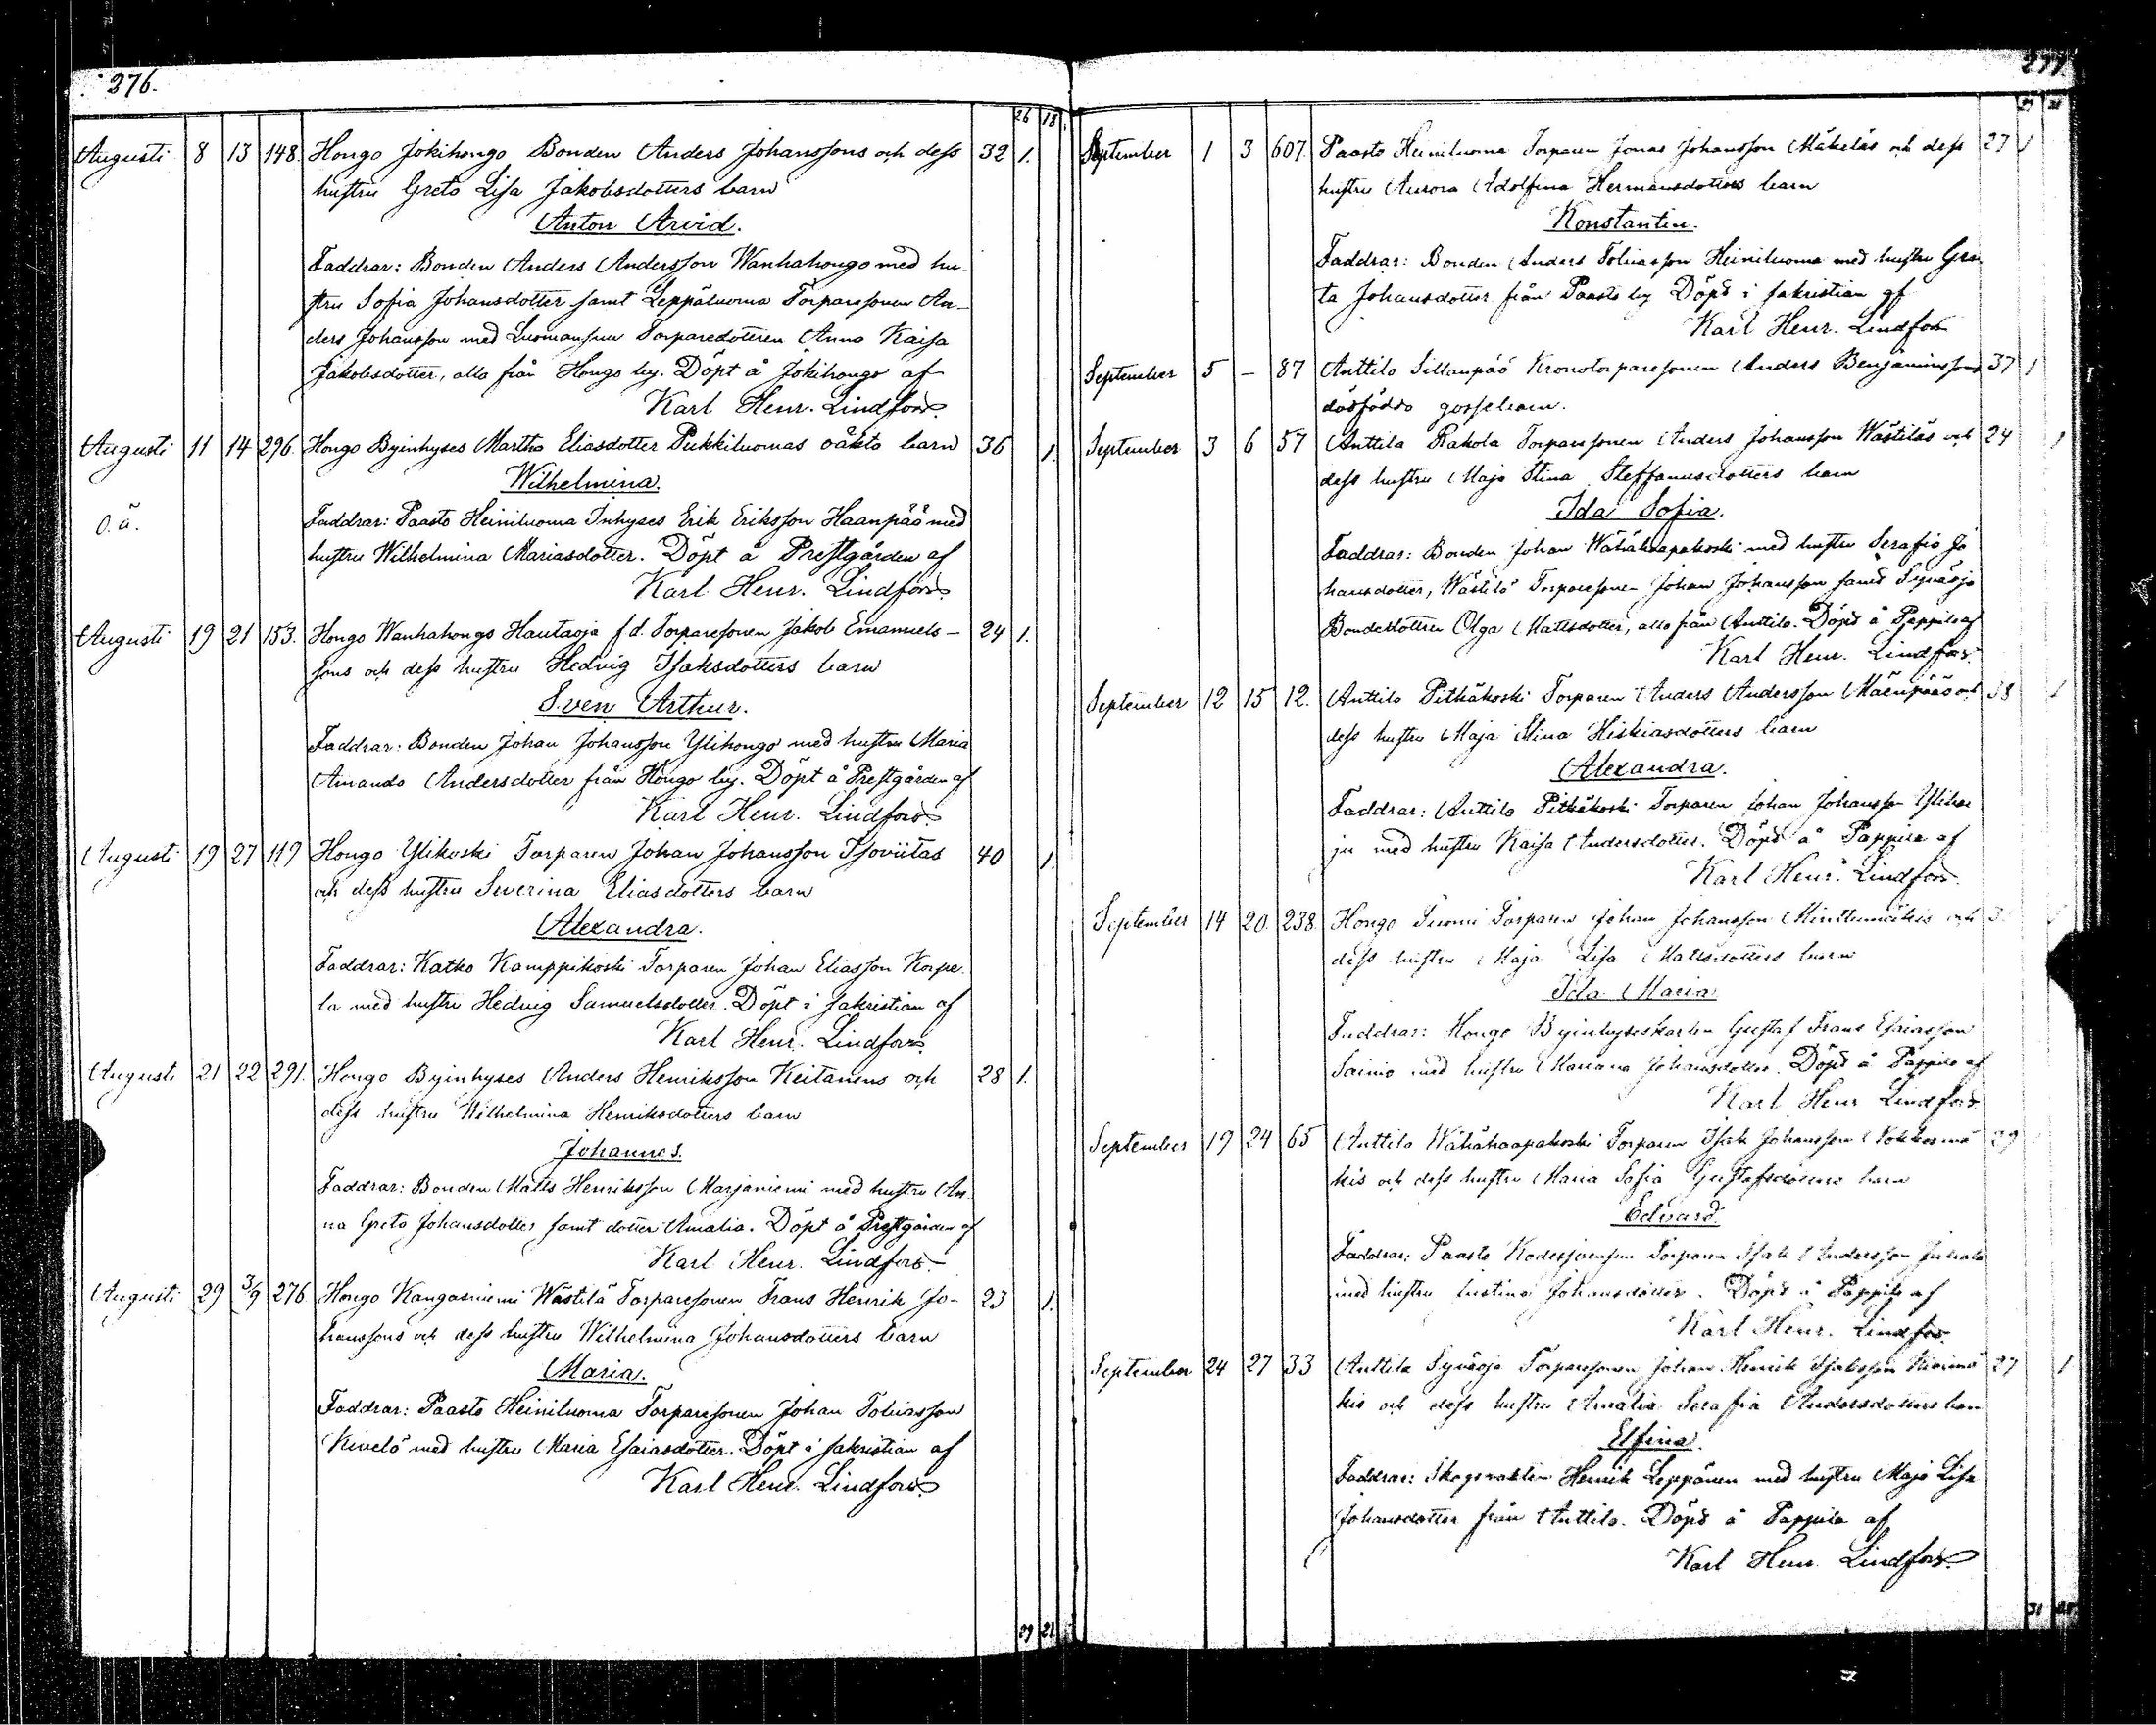 276.
26 18
Augusti 8 13 148. Hongo Jokihongo Bonden Anders Johanssons och dess 32 1.
hustru Greta Lisa Jakobsdotters barn
Anton Arvid.
Faddrar: Bonden Anders Andersson Wanhahongo med hu-
stru Sofia Johansdotter samt Leppäluoma Torparesonen An-
ders Johansson med Luomansuu Torparedottren Anna Kaisa
Jakobsdotter, alla från Hongo by. Döpt å Jokihongo af
Karl Henr. Lindfors.
Augusti 11 14 296. Hongo Byinhyses Martha Eliasdotter Pukkiluomas oäkta barn 36 1.
Wilhelmina.
O.ä. Faddrar: Paasto Heiniluoma Inhyses Erik Eriksson Haanpää med
hustru Wilhelmina Mariasdotter. Döpt å Prestgården af
Karl Henr. Lindfors.
Augusti 19 21 153. Hongo Wanhahongo Hautaoja f.d. Torparesonen Jakob Emanuels- 24 1.
sons och dess hustru Hedvig Isaksdotters barn
Sven Arthur.
Faddrar: Bonden Johan Johansson Ylihongo med hustru Maria
Amanda Andersdotter från Hongo by. Döpt å Prestgården af
Karl Henr. Lindfors.
Augusti 19 27 119 Hongo Ylikoski Torparen Johan Johansson Isoviitas 40 1.
och dess hustru Severina Eliasdotters barn
Alexandra.
Faddrar: Katko Kamppikoski Torparen Johan Eliasson Korpe-
la med hustru Hedvig Samuelsdotter. Döpt i sakristian af
Karl Henr. Lindfors.
Augusti 21 22 291. Hongo Byinhyses Anders Henriksson Keitanens och 28 1.
dess hustru Wilhelmina Henriksdotters barn
Johannes.
Faddrar: Bonden Matts Henriksson Marjaniemi med hustru An-
na Greta Johansdotter, samt dotter Amalia. Döpt å Prestgården af
Karl Henr. Lindfors.
Augusti 29 3/9 276 Hongo Kangasniemi Wästilä Torparesonen Frans Henrik Jo- 23 1.
hanssons och dess hustru Wilhelmina Johansdotters barn
Maria.
Faddrar: Paasto Heiniluoma Torparesonen Johan Tobiasson
Kivelä med hustru Maria Esaiasdotter. Döpt i sakristian af
Karl Henr. Lindfors.
29 21
277.
September 1 3 607. Paasto Heiniluoma Torparen Jonas Johansson Mäkeläs och dess 27 1
hustru Aurora Adolfina Hermansdotters barn
Konstantin.
Faddrar: Bonden Anders Tobiasson Heiniluoma med hustru Gre-
ta Johansdotter från Paasto by Döpt i sakristian af
Karl Henr. Lindfors
September 5 - 87 Anttila Sillanpää Kronotorparesonen Anders Benjaminssons 37 1
dödfödda gossebarn.
September 3 6 57 Anttila Rahola Torparesonen Anders Johansson Wästiläs och 24 1
dess hustru Maja Stina Steffanusdotters barn
Ida Sofia.
Faddrar: Bonden Johan Wähähaapakoski med hustru Serafia Jo
hansdotter, Wästilä Torparesonen Johan Johansson samt Synäoja
Bondedottren Olga Mattsdotter, alla från Anttila. Döpt å Pappila af
Karl Henr. Lindfors.
September 12 15 12. Anttila Pitkäkoski Torparen Anders Andersson Mäenpääs och 38 1
dess hustru Maja Stina Hiskiasdotters barn
Alexandra.
Faddrar: Anttila Pitkäkoski Torparen Johan Johansson
med hustru Kaisa Andersdotter. Döpt å Pappila af
Karl Henr. Lindfors.
September 14 20. 238. Hongo Suomi Torparen Johan Johansson och
dess hustru Maja Lisa Mattsdotters barn
Ida Maria
Faddrar: Hongo Byinhyseskarlen Gustaf Frans Esaiasson
Sainio med hustru Mariana Johansdotter. Döpt å Pappila af
Karl Henr Lindfors.
September 19 24 65 Anttila Wähähaapakoski Torparen Isak Johansson Kokkomä 29
kis och dess hustru Maria Sofia Gustafsdotters barn
Edvard.
Faddrar: Paasto Torparen Isak Andersson
med hustru Justina Johansdotter. Döpt å Pappila af
Karl Henr. Lindfors.
September 24 27 33 Anttila Synäoja Torparesonen Johan Henrik Isaksson 27 1
kis och dess hustru Amalia Serafia Andersdotters barn
Elfina.
Faddrar: Skogsvakten Henrik Leppänen med hustru Maja Lisa
Johansdotter från Anttila. Döpt å Pappila af
Karl Henr. Lindfors.
31